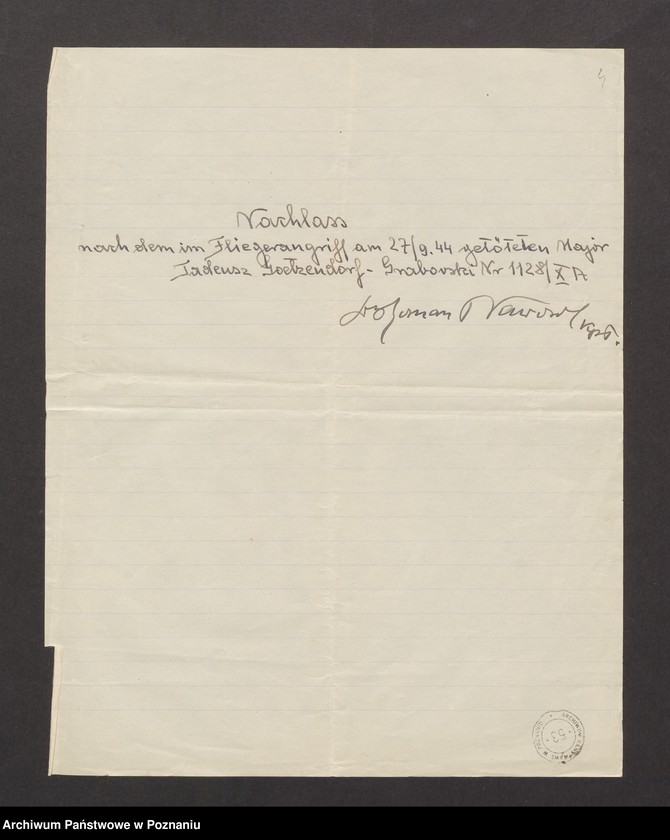 4
Nachlass
nach dem im Fliegerangriff am 27/9.44 getöteten Major
Tadeusz Goetzendorf-Grabovski Nr 1128/X A
Dr Roman
ARCHIWUM PAŃSTWOWE W POZNANIU
53
Archiwum Państwowe w Poznaniu